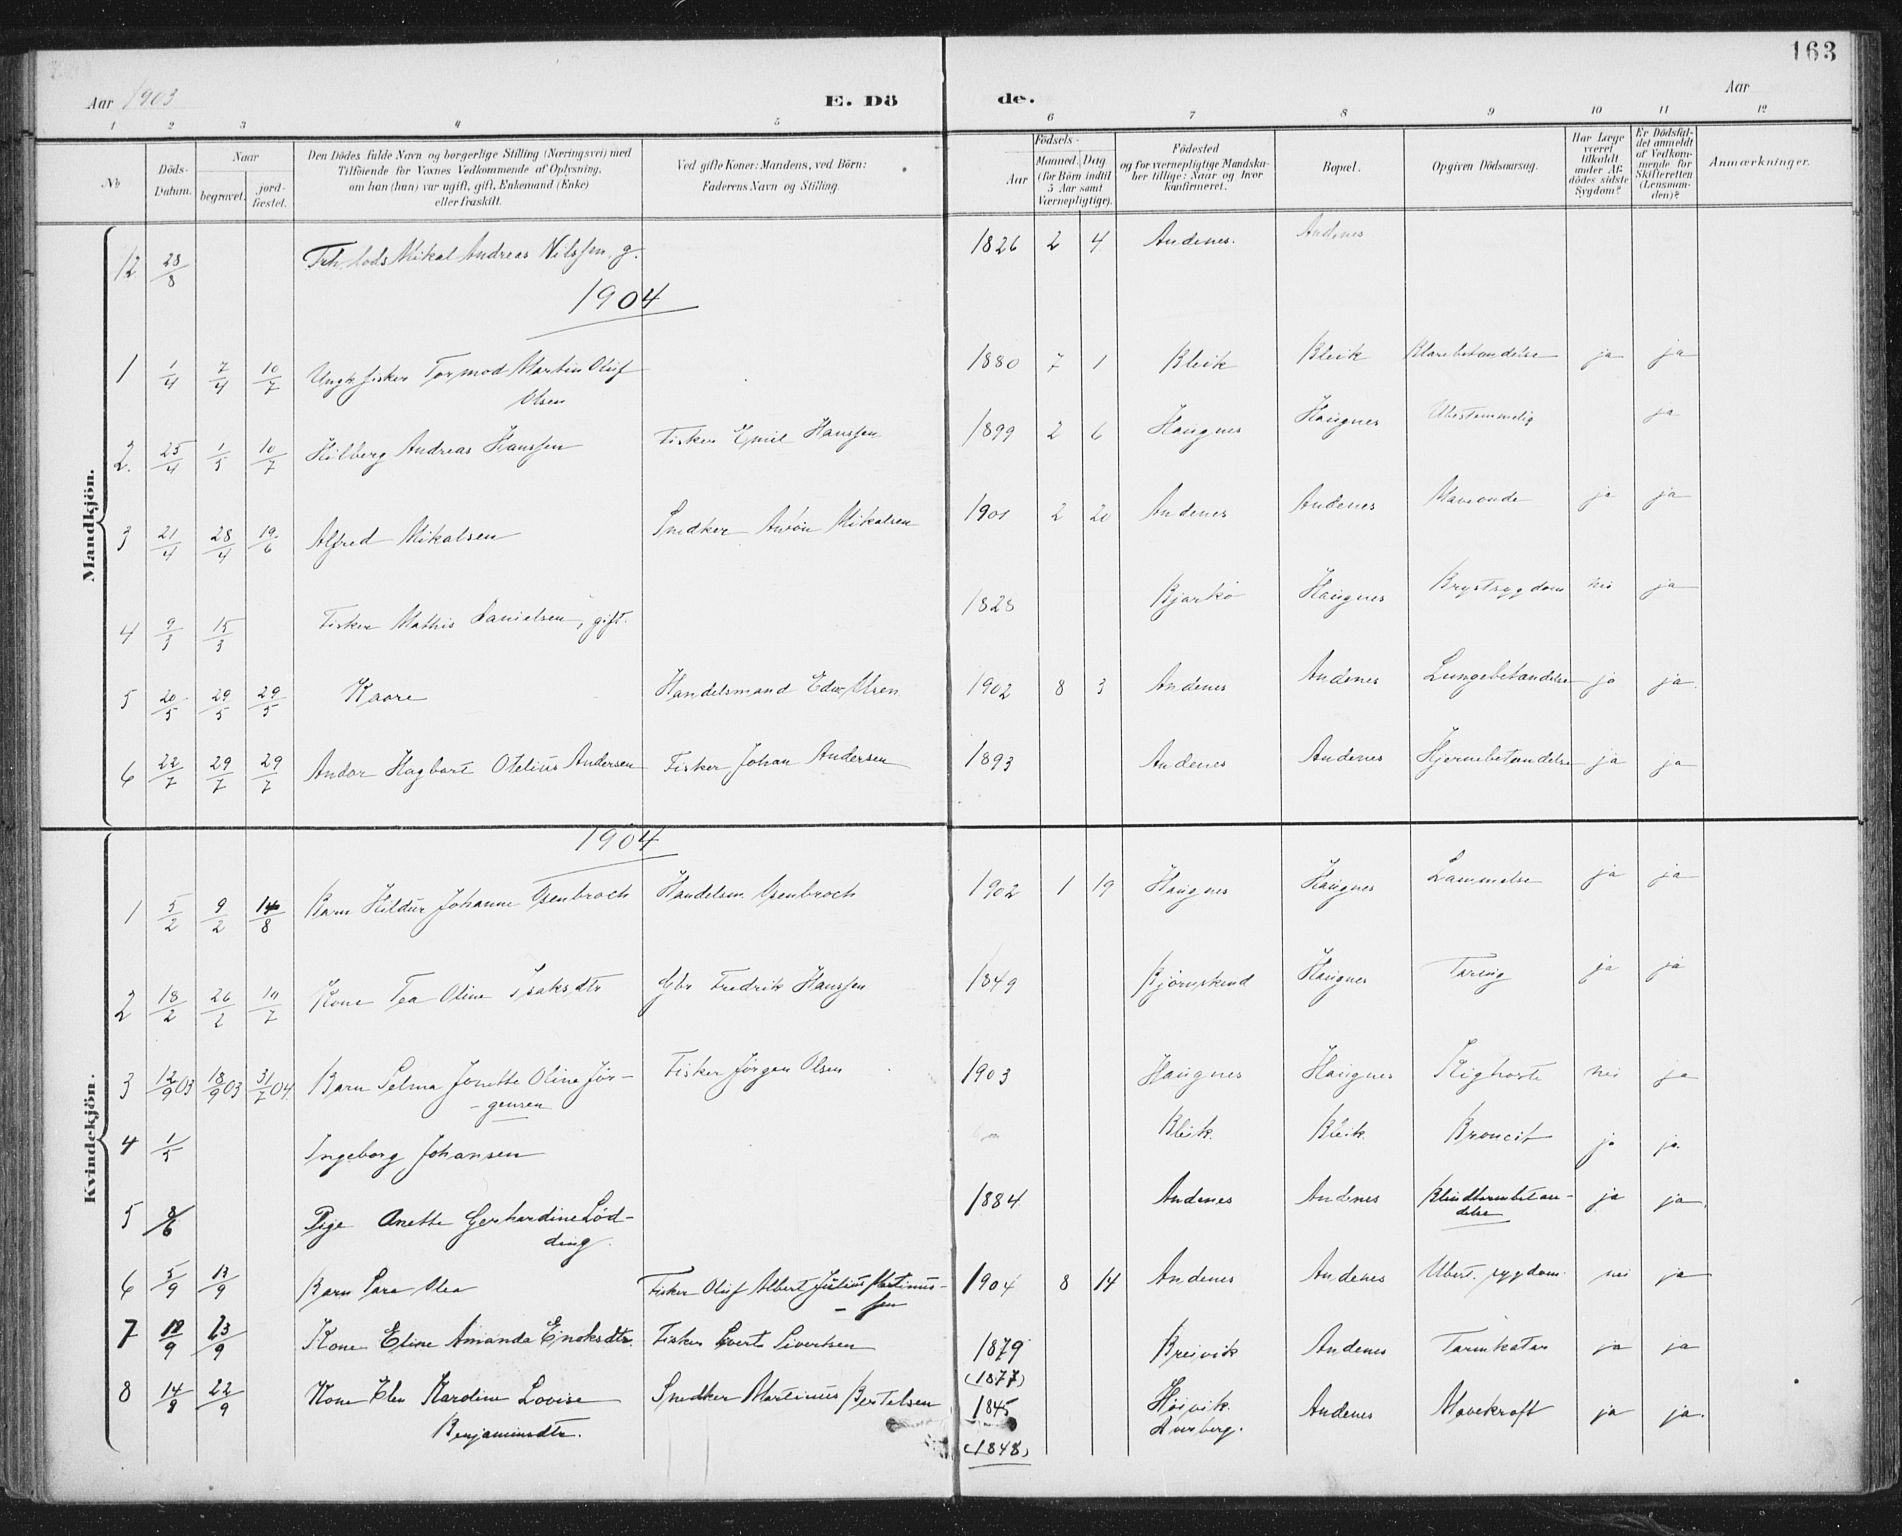 163
Aar 1903 E. Dö de. Aar
1 2 3 4 5 6 7 8 9 10 11 12
No
Döds-Datum.
Naar
begravet.
jord-fæstet.
Den Dödes fulde Navn og borgerlige Stilling (Næringsvei) med
Tilföiende for Voxnes Vedkommende af Oplysning,
om han (hun) var ugift, gift, Enkemand (Enke)
eller fraskilt.
Ved gifte Koner: Mandens, ved Börn:
Faderens Navn og Stilling.
Födsels-
Aar
Maaned. Dag
(for Börn indtil
5 Aar samt
Værnepligtige).
Födested
og for værnepligtige Mandska-
ber tillige: Naar og hvor
konfirmeret.
Bopæl.
Opgiven Dödsaarsag.
Har Læge
været
tilkaldt
under Af-
dödes sidste
Sygdom?
Er Dödsfal-
det anmeldt
af Vedkom-
mende for
Skifteretten
(Lensman-
den)?
Anmærkninger.
Mandkjön.
12 28/8 Mikal Andreas Nilssen g. 1826 2 4 Andenes. Andenes
1904
1 1/4 7/4 10/7 Ungk fisker Tormod Martin Oluf 1880 7 1 Bleik Bleik Blærebetændelse ja ja
Olsen
2. 25/4 1/5 10/7 Hilberg Andreas Hanssen Fisker Emil Hanssen 1899 2 6 Haugnes Haugnes Ubestemmelig ja
3 21/4 28/4 19/6 Alfred Mikalsen Snedker Anton Mikalsen 1901 2 20 Andenes Andenes Maveonde ja ja
4 9/3 15/3 Fisker Mathis Danielsen, gift. 1828 Bjarkö Haugnes Brystsygdom nei ja
5 20/5 29/5 29/5 Kaare Handelsmand Edv. Olsen 1902 8 3 Andenes Andenes Lungebetændelse ja ja
6 22/7 29/7 29/7 Andor Hagbart Otelius Andersen Fisker Johan Andersen 1893 Andenes Andenes Hjernebetændelse ja ja
Kvindekjön.
1904
1 5/2 9/2 14/8 Barn Hildur Johanne Osenbroch Handelsm. Osenbroch 1902 1 19 Haugnes Haugnes Lammelse ja ja
2 18/2 26/2 10/7 Kone Tea Oline Isaksdtr Gbr Fredrik Hanssen 1849 Bjørnskind Haugnes Tæring ja ja
3 12/9 03 18/9 03 31/7 04. Barn Selma Jonette Oline Jör- Fisker Jörgen Olsen 1903 Haugnes Haugnes Kighoste nei ja
-gensen
4 1/5 Ingeborg Johansen Bleik. Bleik. Broncit ja ja.
5 8/6 Pige Anette Gerhardine Lød- 1884 Andenes Andenes Blindtarmbetæn- ja ja.
ding. delse
6 5/9 13/9 Barn Sara Olea Fisker Oluf Albert Julius Martinus- 1904 8 14 Andenes Andenes Ubest. sygdom. nei ja
-sen
7 12/9 23/9 Kone Eline Amanda Enoksdtr. Fisker Sivert Sivertsen 1879 Breivik Andenes Tarmkatar ja ja
(1877)
8 14/9 22/9 Kone Elen Karoline Lovise Snedker Martinus Bertelsen 1845 Höivik. Andenes Mavekræft ja ja.
Benjaminsdtr. (1848)